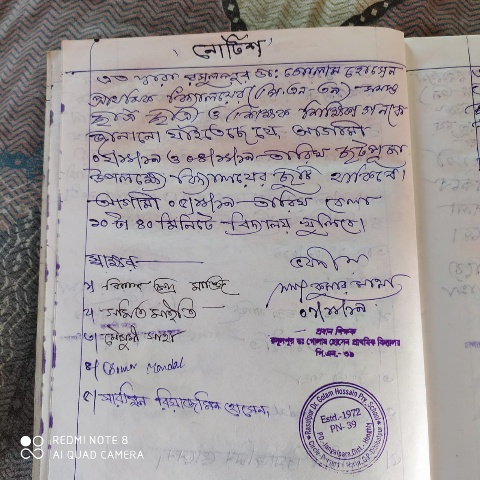 নোটিশ
এত দ্বারা রসুলপুর ডাঃ গোলাম হোসেন
প্রাথমিক বিদ্যালয়ের (পি.এন-৩৯) সমস্ত
ছাত্র ছাত্রী ও শিক্ষক শিক্ষিকাগণকে
জানানো যাইতেছে যে, আগামী
০২/১১/১৯ ও ০৪/১১/১৯ তারিখ ছটপূজা
উপলক্ষ্যে বিদ্যালয়ের ছুটি থাকিবে।
আগামী ০৫/১১/১৯ তারিখ বেলা
১০টা ৪০ মিনিটে বিদ্যালয় খুলিবে।
স্বাক্ষর
১) চন্দ্র মাঝি
২) সমিত মাইতি
৩) মৌসুমী সাহা
৪) Mondal
৫)
০১/১১/১৯
প্রধান শিক্ষক
রসুলপুর ডাঃ গোলাম হোসেন প্রাথমিক বিদ্যালয়
পি.এন.- ৩৯
Rasulpur Dr. Golam Hossain Pry. School
Estd.-1972
PN-39
REDMI NOTE 8
AI QUAD CAMERA